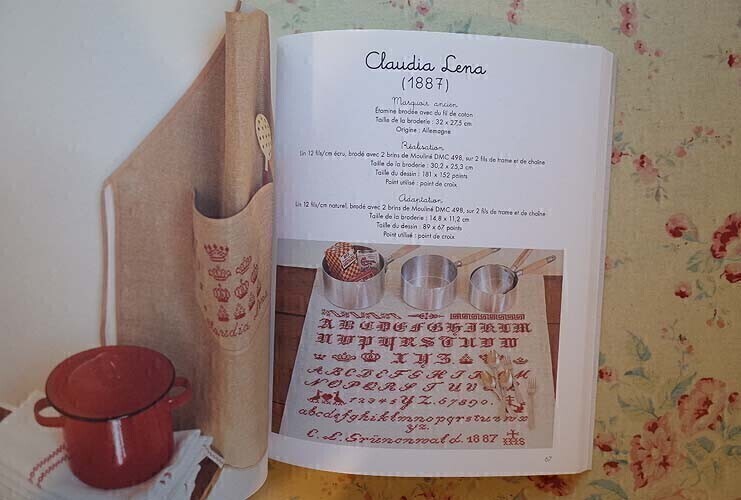 Claudia Lena
(1887)
Marquoir ancien
Étamine brodée avec du fil de coton
Taille de la broderie : 32 x 27,5 cm
Origine : Allemagne
Réalisation
Lin 12 fils/cm écru, brodé avec 2 brins de Mouliné DMC 498, sur 2 fils de trame et de chaîne
Taille de la broderie : 30,2 x 25,3 cm
Taille du dessin : 181 x 152 points
Point utilisé : point de croix
Adaptation
Lin 12 fils/cm naturel, brodé avec 2 brins de Mouliné DMC 498, sur 2 fils de trame et de chaîne
Taille de la broderie : 14,8 x 11,2 cm
Taille du dessin : 89 x 67 points
Point utilisé : point de croix
ABCDEFGHIKLM
NOPQRSTUVW
XYZ
ABCDEFGHIKLM
NOPQRSTUV
YZ
abcdefghiklmnopqrstuvwx
yz.
C. L. Grünonwald. 1887
67